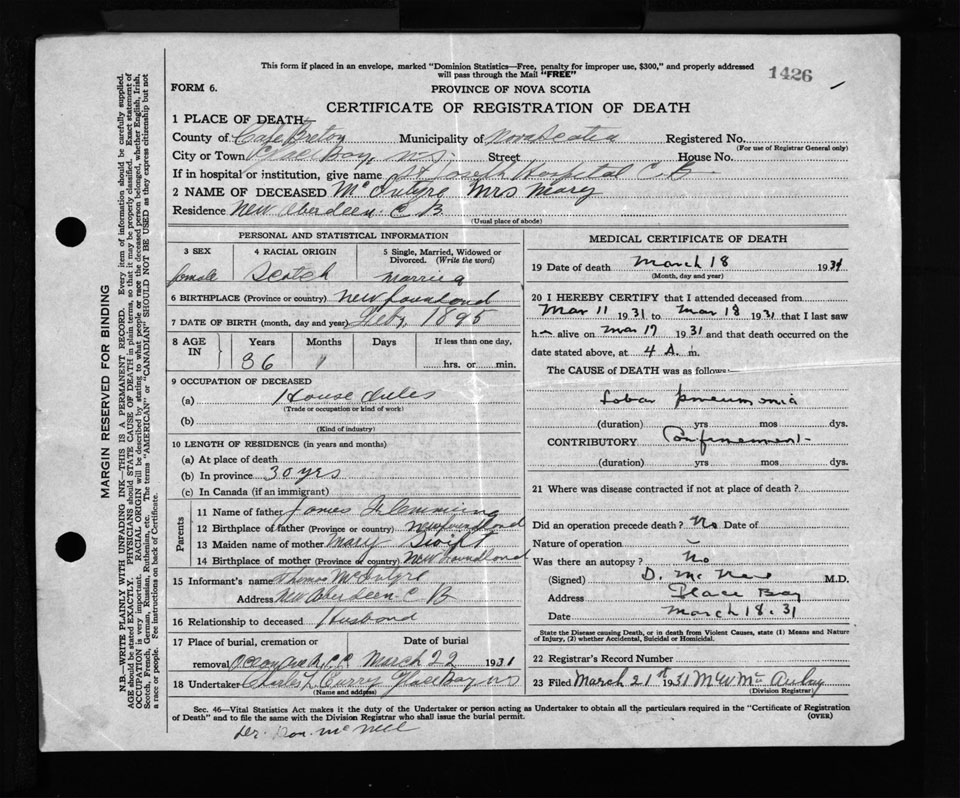 This form if placed in an envelope, marked "Dominion Statistics—Free, penalty for improper use, $300," and properly addressed
will pass through the Mail "FREE"
1426
FORM 6.
PROVINCE OF NOVA SCOTIA
CERTIFICATE OF REGISTRATION OF DEATH
1 PLACE OF DEATH
County of Cape Breton Municipality of Nova Scotia Registered No.
(For use of Registrar General only)
City or Town Glace Bay, N.S. Street House No.
If in hospital or institution, give name St Joseph Hospital C.B
2 NAME OF DECEASED McIntyre Mrs Mary
Residence New Aberdeen C B.
(Usual place of abode)
PERSONAL AND STATISTICAL INFORMATION
3 SEX 4 RACIAL ORIGIN 5 Single, Married, Widowed or
Divorced. (Write the word)
female Scotch Married
6 BIRTHPLACE (Province or country) Newfoundland
7 DATE OF BIRTH (month, day and year) Feb, 1895
8 AGE IN Years Months Days If less than one day,
36 1 hrs. or min.
9 OCCUPATION OF DECEASED
(a) House duties
(Trade or occupation or kind of work)
(b)
(Kind of industry)
10 LENGTH OF RESIDENCE (in years and months)
(a) At place of death
(b) In province 30 yrs
(c) In Canada (if an immigrant)
Parents
11 Name of father James Flemming
12 Birthplace of father (Province or country) Newfoundland
13 Maiden name of mother Mary Swift
14 Birthplace of mother (Province or country) Newfoundland
15 Informant's name Thomas McIntyre
Address New Aberdeen C B
16 Relationship to deceased Husband
17 Place of burial, cremation or Date of burial
removal March 22 1931
18 Undertaker Charles L Curry Glace Bay NS
(Name and address)
MEDICAL CERTIFICATE OF DEATH
19 Date of death March 18 1931
(Month, day and year)
20 I HEREBY CERTIFY that I attended deceased from
Mar 11 1931 to Mar 18 1931 that I last saw
h alive on Mar 17 1931 and that death occurred on the
date stated above, at 4 A. m.
The CAUSE of DEATH was as follows:
Lobar pneumonia
(duration) yrs mos dys.
CONTRIBUTORY Confinement
(duration) yrs mos dys.
21 Where was disease contracted if not at place of death?
Did an operation precede death? No Date of
Nature of operation
Was there an autopsy? No
(Signed) D. McNeil M.D.
Address Glace Bay
Date March 18. 31
State the Disease causing Death, or in death from Violent Causes, state (1) Means and Nature
of Injury, (2) whether Accidental, Suicidal or Homicidal.
22 Registrar's Record Number
23 Filed March 21st 1931 M W
(Division Registrar)
Sec. 46—Vital Statistics Act makes it the duty of the Undertaker or person acting as Undertaker to obtain all the particulars required in the "Certificate of Registration
of Death" and to file the same with the Division Registrar who shall issue the burial permit.
(OVER)
Dr. Dan. McNeil
MARGIN RESERVED FOR BINDING
N.B.—WRITE PLAINLY WITH UNFADING INK—THIS IS A PERMANENT RECORD. Every item of information should be carefully supplied.
AGE should be stated EXACTLY. PHYSICIANS should STATE CAUSE OF DEATH in plain terms, so that it may be properly classified. Exact statement of
OCCUPATION is very important. RACIAL ORIGIN will be described by stating to what people or race the deceased person belonged, whether English, Irish,
Scotch, French, German, Russian, Ruthenian, etc. The terms "AMERICAN" or "CANADIAN" SHOULD NOT BE USED as they express citizenship but not
a race or people. See instructions on back of Certificate.